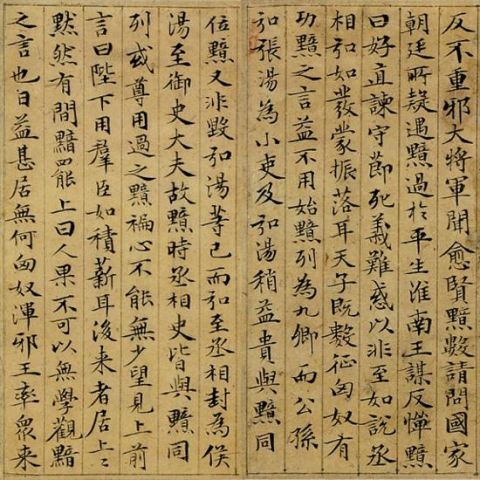 反不重邪大將軍聞愈賢黯數請問國家
朝廷所疑遇黯過於平生淮南王謀反憚黯
曰好直諫守節死義難惑以非至如說丞
相弘如發蒙振落耳天子既數征匈奴有
功黯之言益不用始黯列為九卿而公孫
弘張湯為小吏及弘湯稍益貴與黯同
位黯又非毀弘湯等已而弘至丞相封為侯
湯至御史大夫故黯時丞相史皆與黯同
列或尊用過之黯褊心不能無少望見上前
言曰陛下用羣臣如積薪耳後來者居上〻
黙然有間黯罷上曰人果不可以無學觀黯
之言也日益甚居無何匈奴渾邪王率眾來